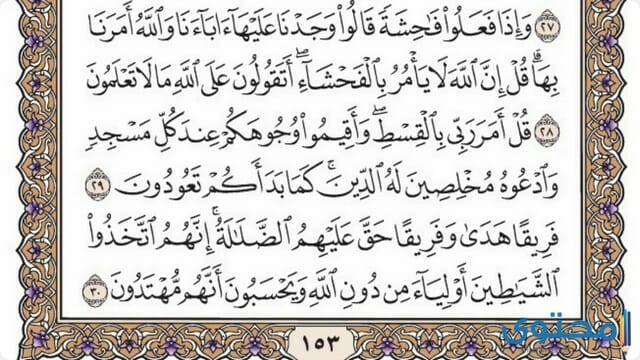 ٢٧ وَإِذَا فَعَلُوا۟ فَٰحِشَةً قَالُوا۟ وَجَدْنَا عَلَيْهَآ ءَابَآءَنَا وَٱللَّهُ أَمَرَنَا
بِهَا ۗ قُلْ إِنَّ ٱللَّهَ لَا يَأْمُرُ بِٱلْفَحْشَآءِ ۖ أَتَقُولُونَ عَلَى ٱللَّهِ مَا لَا تَعْلَمُونَ
٢٨ قُلْ أَمَرَ رَبِّى بِٱلْقِسْطِ ۖ وَأَقِيمُوا۟ وُجُوهَكُمْ عِندَ كُلِّ مَسْجِدٍ
وَٱدْعُوهُ مُخْلِصِينَ لَهُ ٱلدِّينَ ۚ كَمَا بَدَأَكُمْ تَعُودُونَ ٢٩
فَرِيقًا هَدَىٰ وَفَرِيقًا حَقَّ عَلَيْهِمُ ٱلضَّلَٰلَةُ ۗ إِنَّهُمُ ٱتَّخَذُوا۟
ٱلشَّيَٰطِينَ أَوْلِيَآءَ مِن دُونِ ٱللَّهِ وَيَحْسَبُونَ أَنَّهُم مُّهْتَدُونَ ٣٠
١٥٣
محتوى